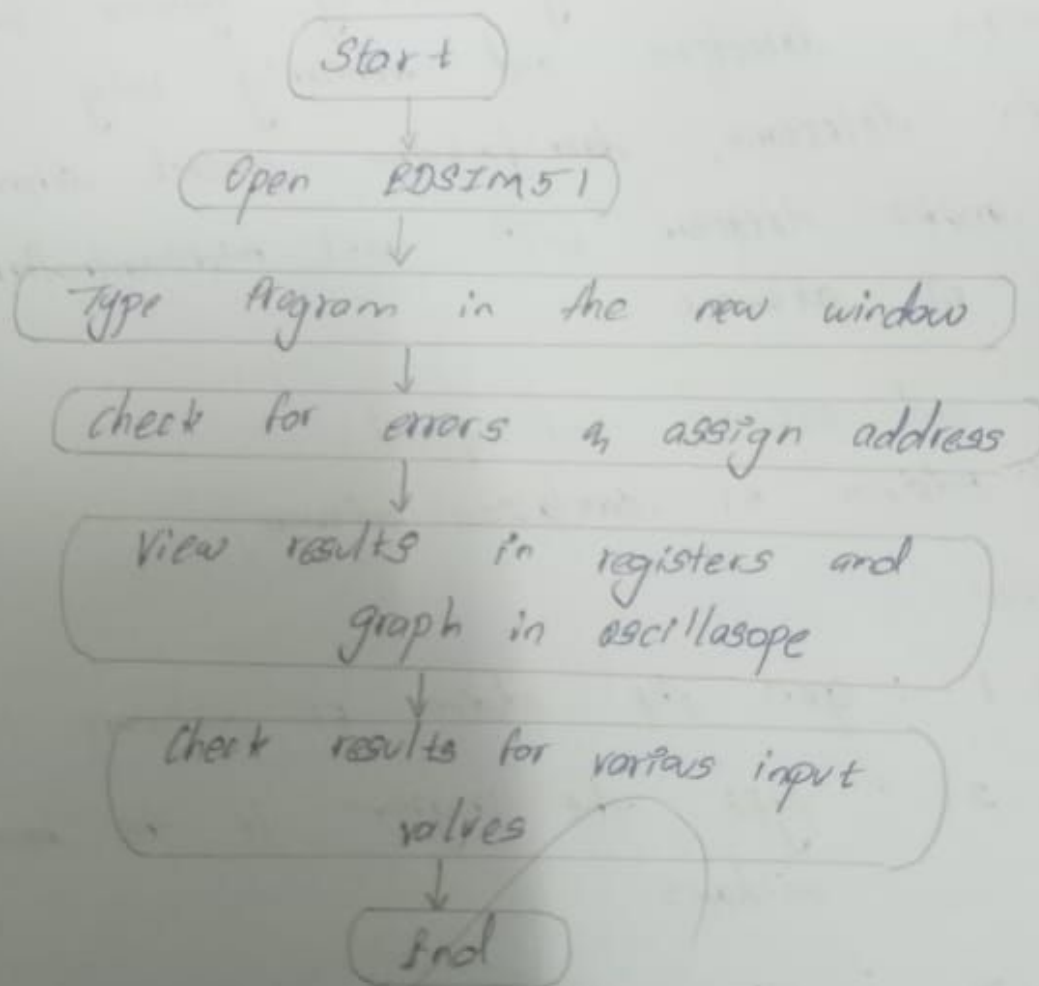 Start
Open EDSIM51
Type Program in the new window
Check for errors & assign address
View results in registers and
graph in oscillasope
Check results for various input
values
End